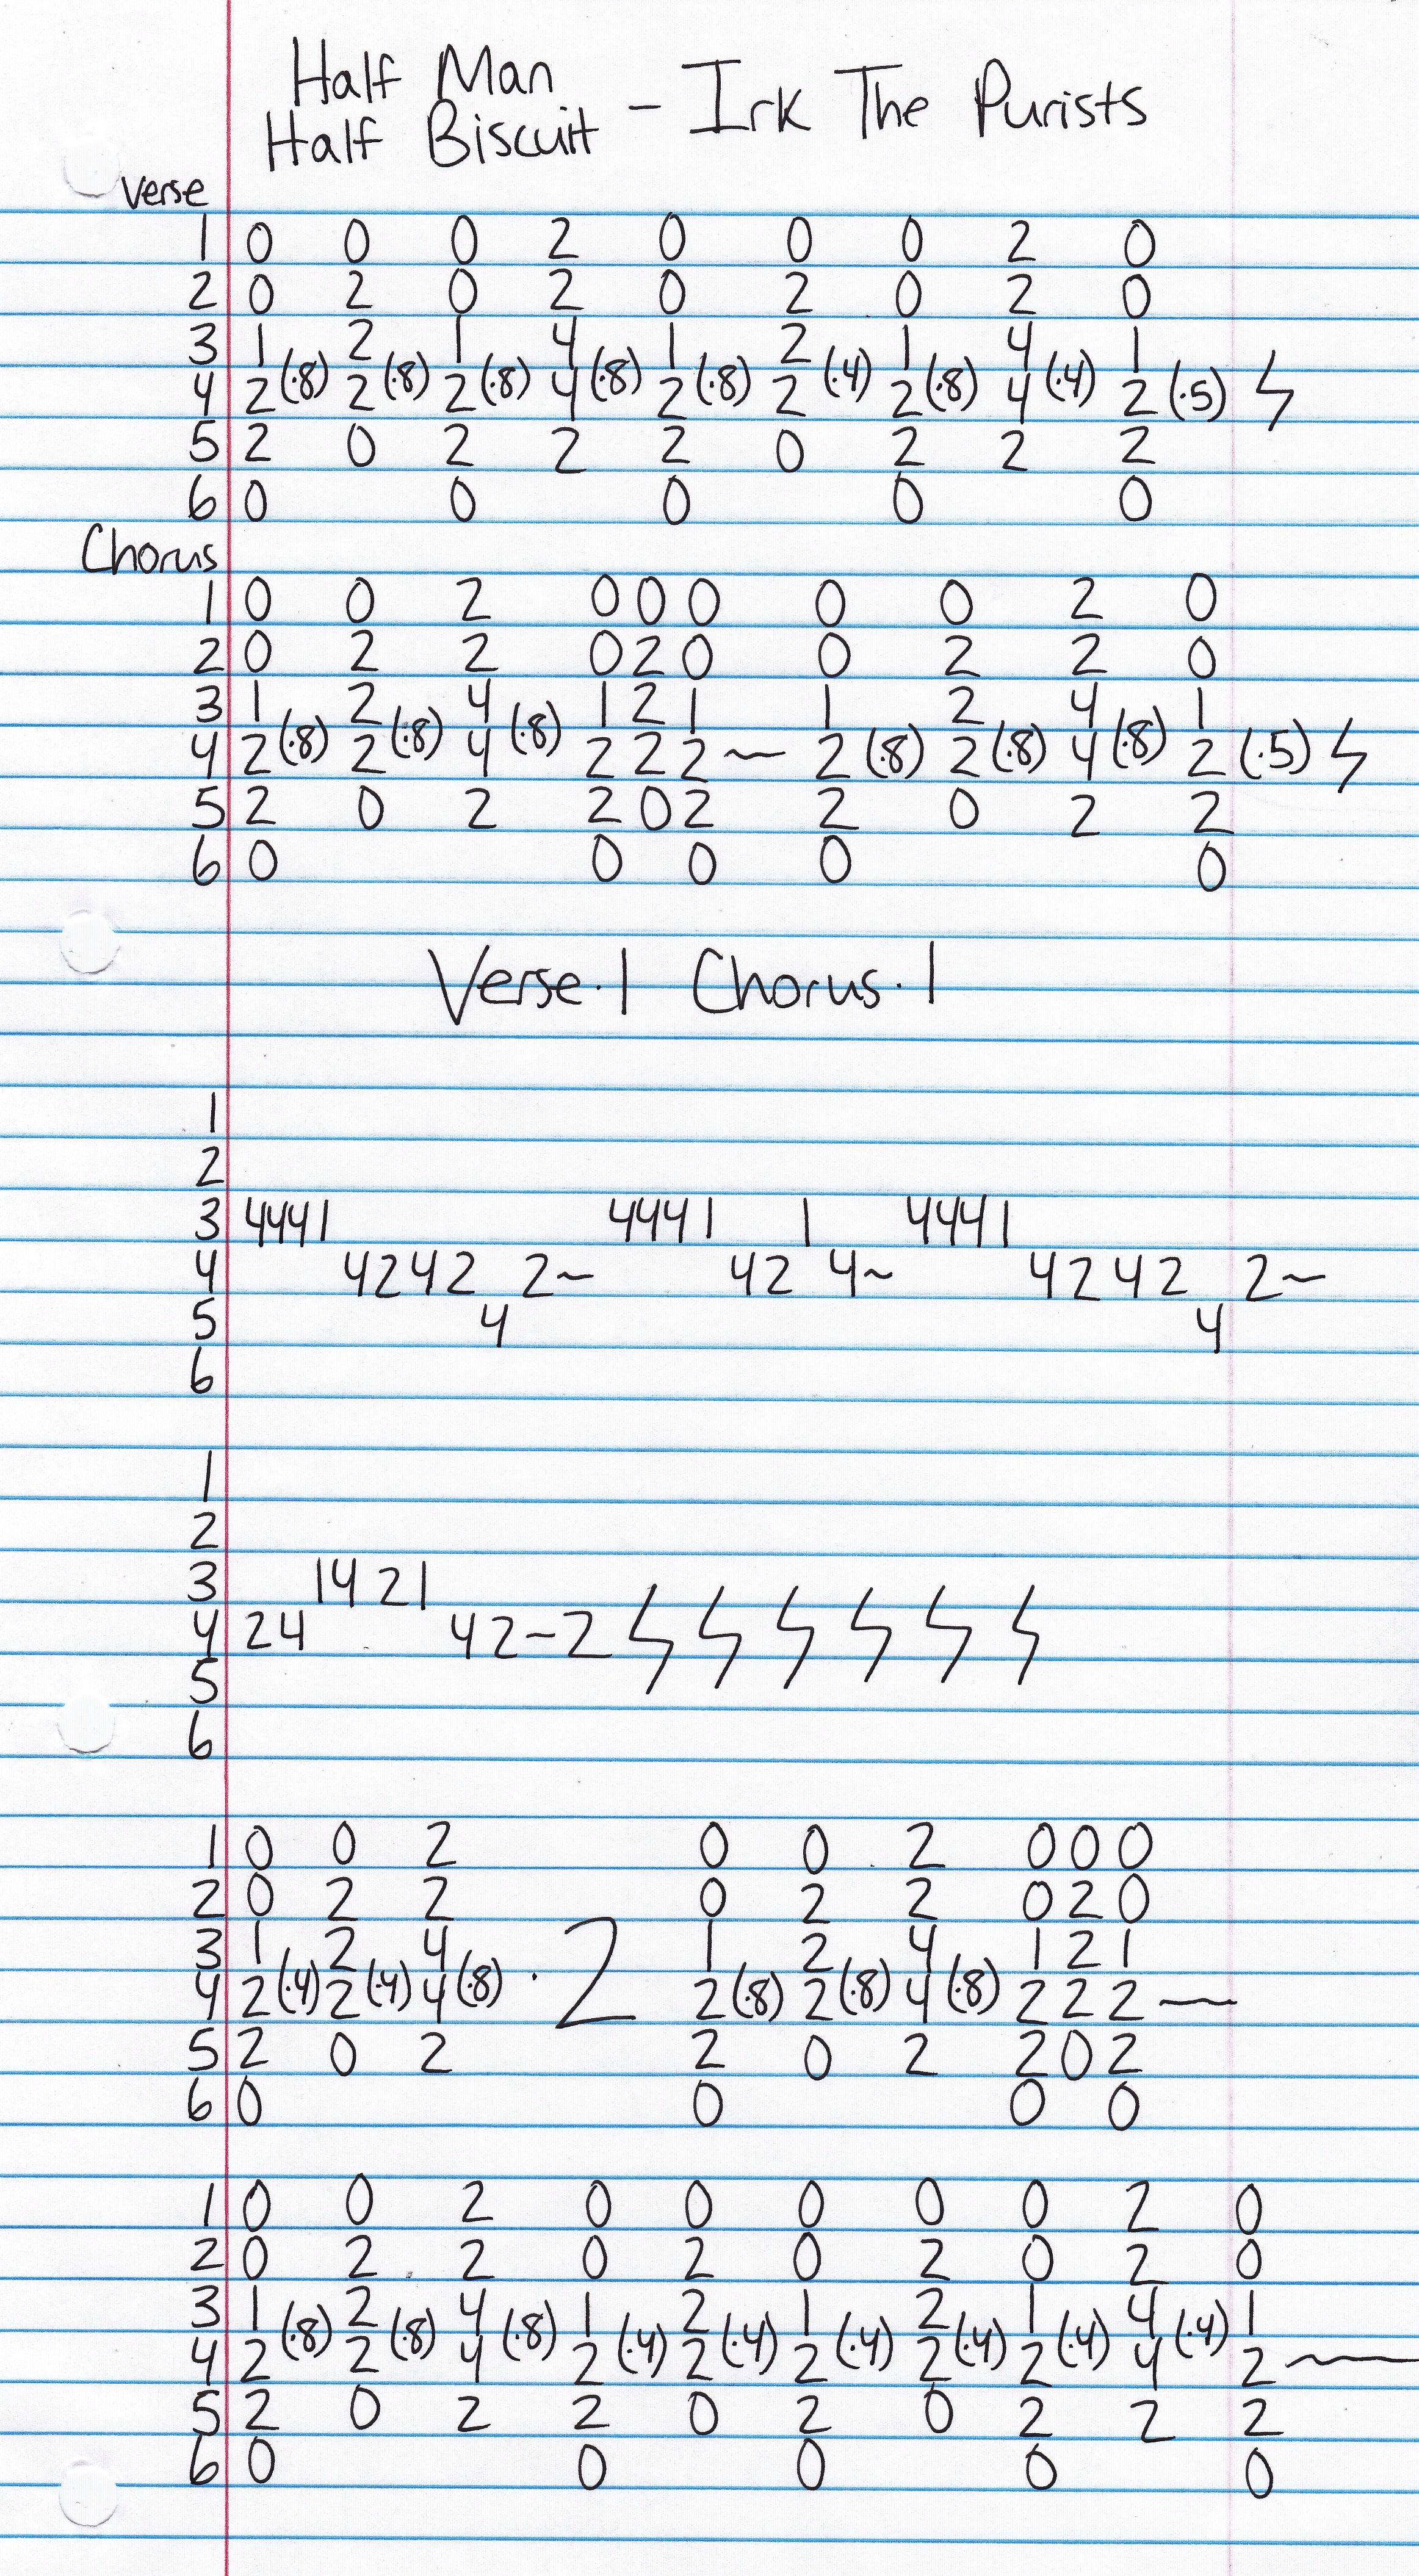 Half Man
Half Biscuit - Irk The Purists
Verse
1 0 0 0 2 0 0 0 2 0
2 0 2 0 2 0 2 0 2 0
3 1 2 1 4 1 2 1 4 1
4 2 (·8) 2 (·8) 2 (·8) 4 (·8) 2 (·8) 2 (·4) 2 (·8) 4 (·4) 2 (·5)
5 2 0 2 2 2 0 2 2 2
6 0 0 0 0 0
Chorus
1 0 0 2 0 0 0 0 0 2 0
2 0 2 2 0 2 0 0 2 2 0
3 1 2 4 1 2 1 1 2 4 1
4 2 (·8) 2 (·8) 4 (·8) 2 2 2 ~ 2 (·8) 2 (·8) 4 (·8) 2 (·5)
5 2 0 2 2 0 2 2 0 2 2
6 0 0 0 0 0
Verse·1 Chorus·1
1
2
3 4441 4441 1 4441
4 4242 2~ 42 4~ 4242 2~
5 4 4
6
1
2
3 14 21
4 24 42~2
5
6
1 0 0 2 0 0 2 0 0 0
2 0 2 2 0 2 2 0 2 0
3 1 2 4 1 2 4 1 2 1
4 2 (·4) 2 (·4) 4 (·8) · 2 2 (·8) 2 (·8) 4 (·8) 2 2 2 ~
5 2 0 2 2 0 2 2 0 2
6 0 0 0 0
1 0 0 2 0 0 0 0 0 2 0
2 0 2 2 0 2 0 2 0 2 0
3 1 2 4 1 2 1 2 1 4 1
4 2 (·8) 2 (·8) 4 (·8) 2 (·4) 2 (·4) 2 (·4) 2 (·4) 2 (·4) 4 (·4) 2 ~
5 2 0 2 2 0 2 0 2 2 2
6 0 0 0 0 0